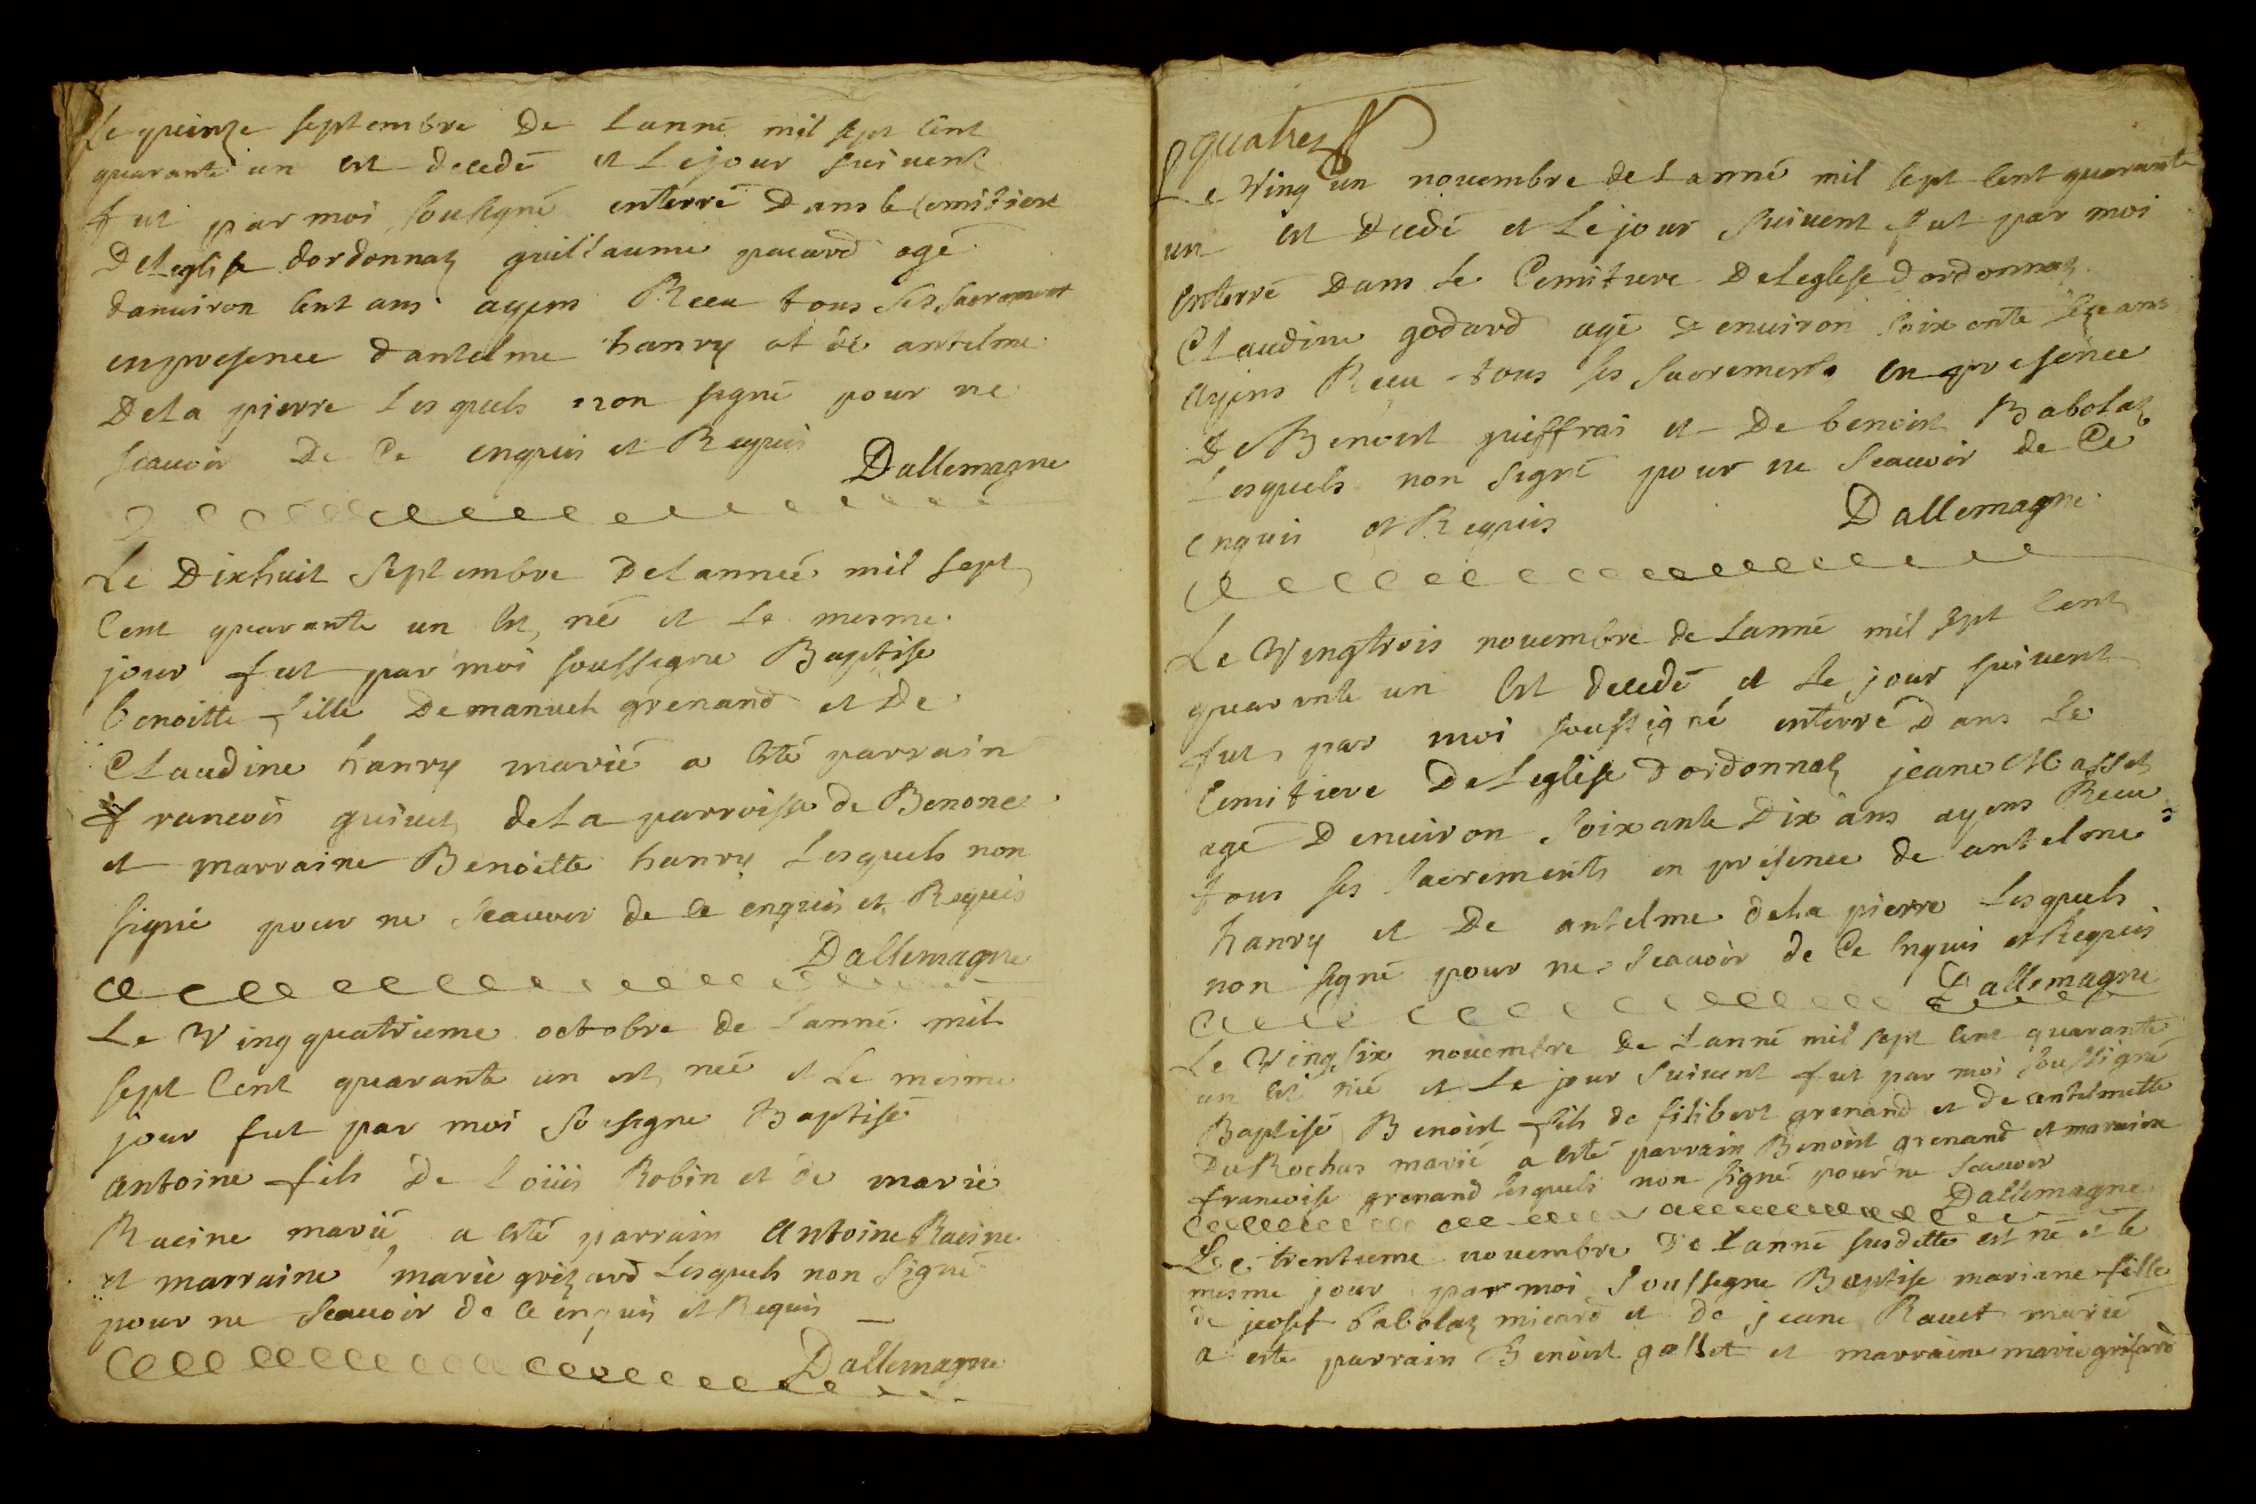 Le quinze septembre De Lanné mil sept Cent
quarante un est decedé et Le jour suivent
fut par moi sousigné enterré Dans le Cemitiere
De Leglise dordonnaz guillaume pacard agé
danviron Cent ans ayens Receu tous ses sacrement
en presence dantelme hanry et de antelme
De La pierre Lesquels non signé pour ne
scauoir De Ce enquis et Requis
Dallemagne
Le Dixhuit Septembre De Lanneé mil sept
Cent quarante un Est né et Le mesme
jour fut par moi soussigne Baptise
benoitte fille De manuel grenand et De
Claudine hanry marié a Esté parrain
francois guivet de La parroisse de Benone
et marraine Benoitte hanry Lesquels non
signé pour ne scauoir de Ce enquis et Requis
Dallemagne
Le Vingquatrieme octobre de Lanné mil
sept Cent quarante un est neé et Le mesme
jour fut par moi Sousigne Baptisé
antoine fils De Loüis Robin et de marie
Racine marié a Esté parrain Antoine Racine
et marraine marie grizard Lesquels non Signé
pour ne Scauoir de Ce enquis et Requis
Dallemagne
quatre
Le Ving un novembre de Lanné mil sept Cent quarante
un est decedé et Le jour suivent fut par moi
Enterré Dans Le Cemitiere De Leglese dordonnaz
Claudine godard agé de environ soixante ans
ayens Receu tous ses sacrements En presence
De Benoist guiffrai et De benoist Babolaz
Lesquels non signé pour ne Scauoir de Ce
Enquis et Requis
Dallemagne
Le Vingtrois novembre de Lanné mil sept Cent
quarante un Est decedé et Le jour suivent
fut par moi soussigné enterré Dans Le
Cemitiere De Leglise Dordonnaz jeane Masset
agé D environ soixante Dix ans ayens Receu
tous ses sacrements en presence de antelme
hanry et De antelme de La pierre Lesquels
non signé pour ne Scauoir de Ce Enquis et Requis
Dallemagne
Le Vingsix novembre de Lanné mil sept Cent quarante
un Est neé et Le jour suivent fut par moi soussigné
Baptisé Benoist fils de filibert grenand et de antelmette
Du Rochas marié a Esté parrain Benoist grenand et maraine
francoise grenand Lesquels non signé pour ne scauoir
Dallemagne
Le trentieme novembre De Lanné susditte est né et le
mesme jour par moi Soussigne Baptise mariane fille
de josef babolaz micard et de jeane Ravet marié
a esté parrain Benoist gallet et marraine marie grisard